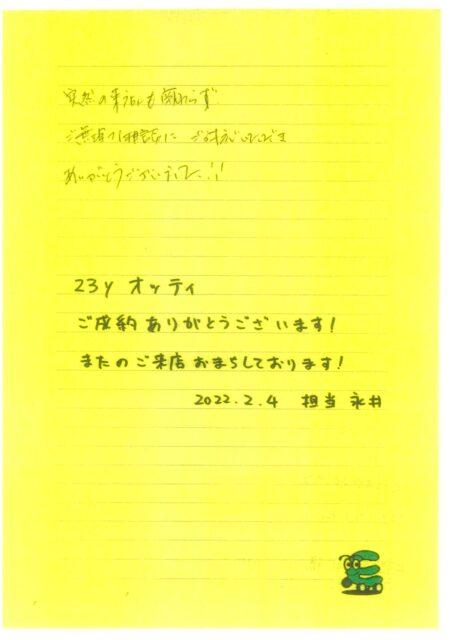 突然の来店にも関わらず
ご無理な相談に ご対応いただき
ありがとうございました!!
23y オッティ
ご成約ありがとうございます!
またのご来店おまちしております!
2022.2.4 担当 永井